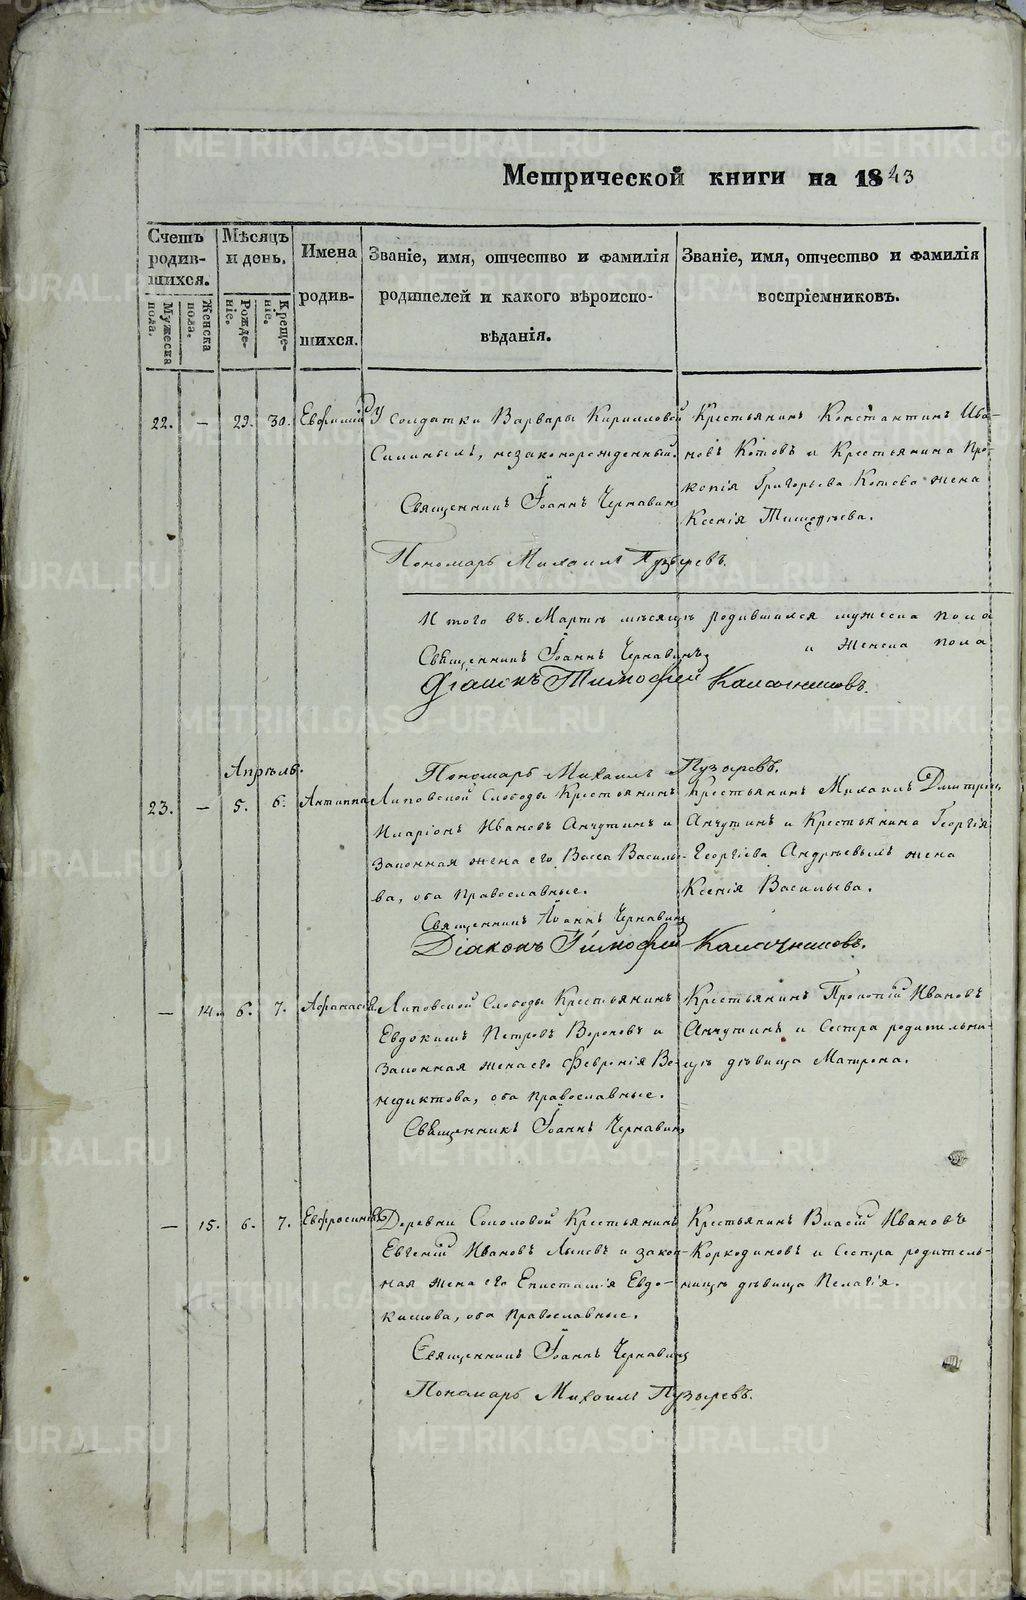 Метрической книги на 1843
Счетъ родив-шихся.
Мужеска пола.
Женска пола.
Мѣсяцъ и день.
Рожде-ніе.
Креще-ніе.
Имена родив-шихся.
Званіе, имя, отчество и фамилія
родителей и какого вѣроиспо-
вѣданія.
Званіе, имя, отчество и фамилія
воспріемниковъ.
22. — 29. 30. Евфимій У Солдатки Варвары Кирилловой Крестьянинъ Константинъ Ива-
незаконорожденный. новъ Котовъ и Крестьянина Про-
копія Григорьева Котова жена
Священникъ Іоаннъ Чернавинъ
Ксенія Тимофѣева.
Пономарь Михаилъ Пузыревъ.
Итого въ Мартѣ мѣсяцѣ родившихся мужеска пола
и Женска пола
Священникъ Іоаннъ Чернавинъ.
Діаконъ Тимофей Калачниковъ.
Пономарь Михаилъ Пузыревъ.
Апрѣль.
23. — 5. 6. Антиппа Липовской Слободы Крестьянинъ Крестьянинъ Михаилъ Дмитріев
Иларіонъ Ивановъ Анчутинъ и Анчутинъ и Крестьянина Георгія
Законная жена его Васса Василье- Георгіева Андрѣевыхъ жена
ва, оба православные. Ксенія Васильева.
Священникъ Іоаннъ Чернавинъ
Діаконъ Тимофей Калачниковъ.
— 14. 6. 7. Афанасія Липовской Слободы Крестьянинъ Крестьянинъ Прокопій Ивановъ
Евдокимъ Петровъ Вороновъ и Анчутинъ и Сестра родительни-
Законная жена его Февронія Ве- цѣ дѣвица Матрона.
недиктова, оба православные.
Священникъ Іоаннъ Чернавинъ
— 15. 6. 7. Евфросинія Деревни Соколовой Крестьянинъ Крестьянинъ Власій Ивановъ
Евгеній Ивановъ и закон- Коркодиновъ и Сестра родитель-
ная жена его Епистимія Евдо- ницѣ дѣвица Пелагія.
кимова, оба православные.
Священникъ Іоаннъ Чернавинъ
Пономарь Михаилъ Пузыревъ.
METRIKI.GASO-URAL.RU